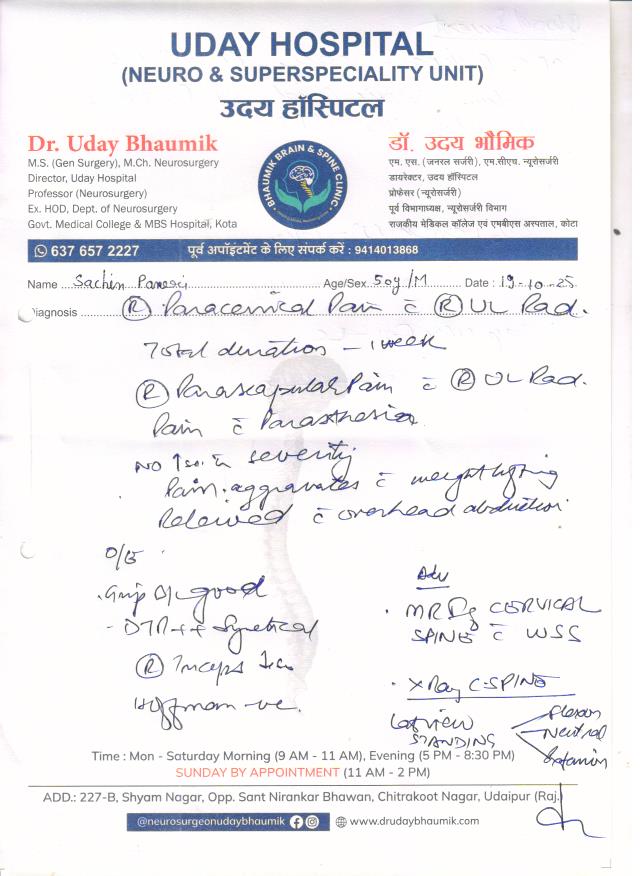 UDAY HOSPITAL
(NEURO & SUPERSPECIALITY UNIT)
उदय हॉस्पिटल
Dr. Uday Bhaumik
M.S. (Gen Surgery), M.Ch. Neurosurgery
Director, Uday Hospital
Professor (Neurosurgery)
Ex. HOD, Dept. of Neurosurgery
Govt. Medical College & MBS Hospital, Kota
BHAUMIK BRAIN & SPINE CLINIC
डॉ. उदय भौमिक
एम. एस. (जनरल सर्जरी), एम.सीएच. न्यूरोसर्जरी
डायरेक्टर, उदय हॉस्पिटल
प्रोफेसर (न्यूरोसर्जरी)
पूर्व विभागाध्यक्ष, न्यूरोसर्जरी विभाग
राजकीय मेडिकल कॉलेज एवं एमबीएस अस्पताल, कोटा
637 657 2227 पूर्व अपॉइंटमेंट के लिए संपर्क करें : 9414013868
Name Sachin Age/Sex 50y/M Date : 19-10-25
Diagnosis (R) Paracervical Pain c̄ (R) UL Rad.
Total duration - 1 week
(R) Parascapular Pain c̄ (R) UL Rad.
Pain c̄ Parasthesia
NO severity
Pain aggravates c̄ weight lifting
Relieved c̄ overhead abduction
O/E
Grip B/L good
- DTR ++ Symetrical
(R) Triceps
Hoffman -ve.
Adv
MRI CERVICAL
SPINE c̄ WSS
X Ray C-SPINE
Lat view
STANDING
Flexion
Neutral
Extension
Time : Mon - Saturday Morning (9 AM - 11 AM), Evening (5 PM - 8:30 PM)
SUNDAY BY APPOINTMENT (11 AM - 2 PM)
ADD.: 227-B, Shyam Nagar, Opp. Sant Nirankar Bhawan, Chitrakoot Nagar, Udaipur (Raj.)
@neurosurgeonudaybhaumik www.drudaybhaumik.com